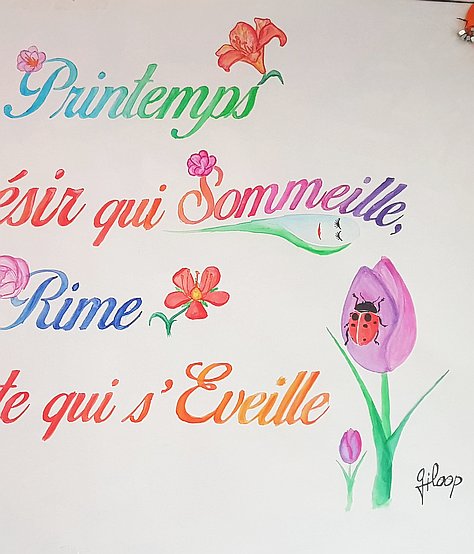 Printemps
ésir qui Sommeille,
Rime
te qui s'Eveille
giloop